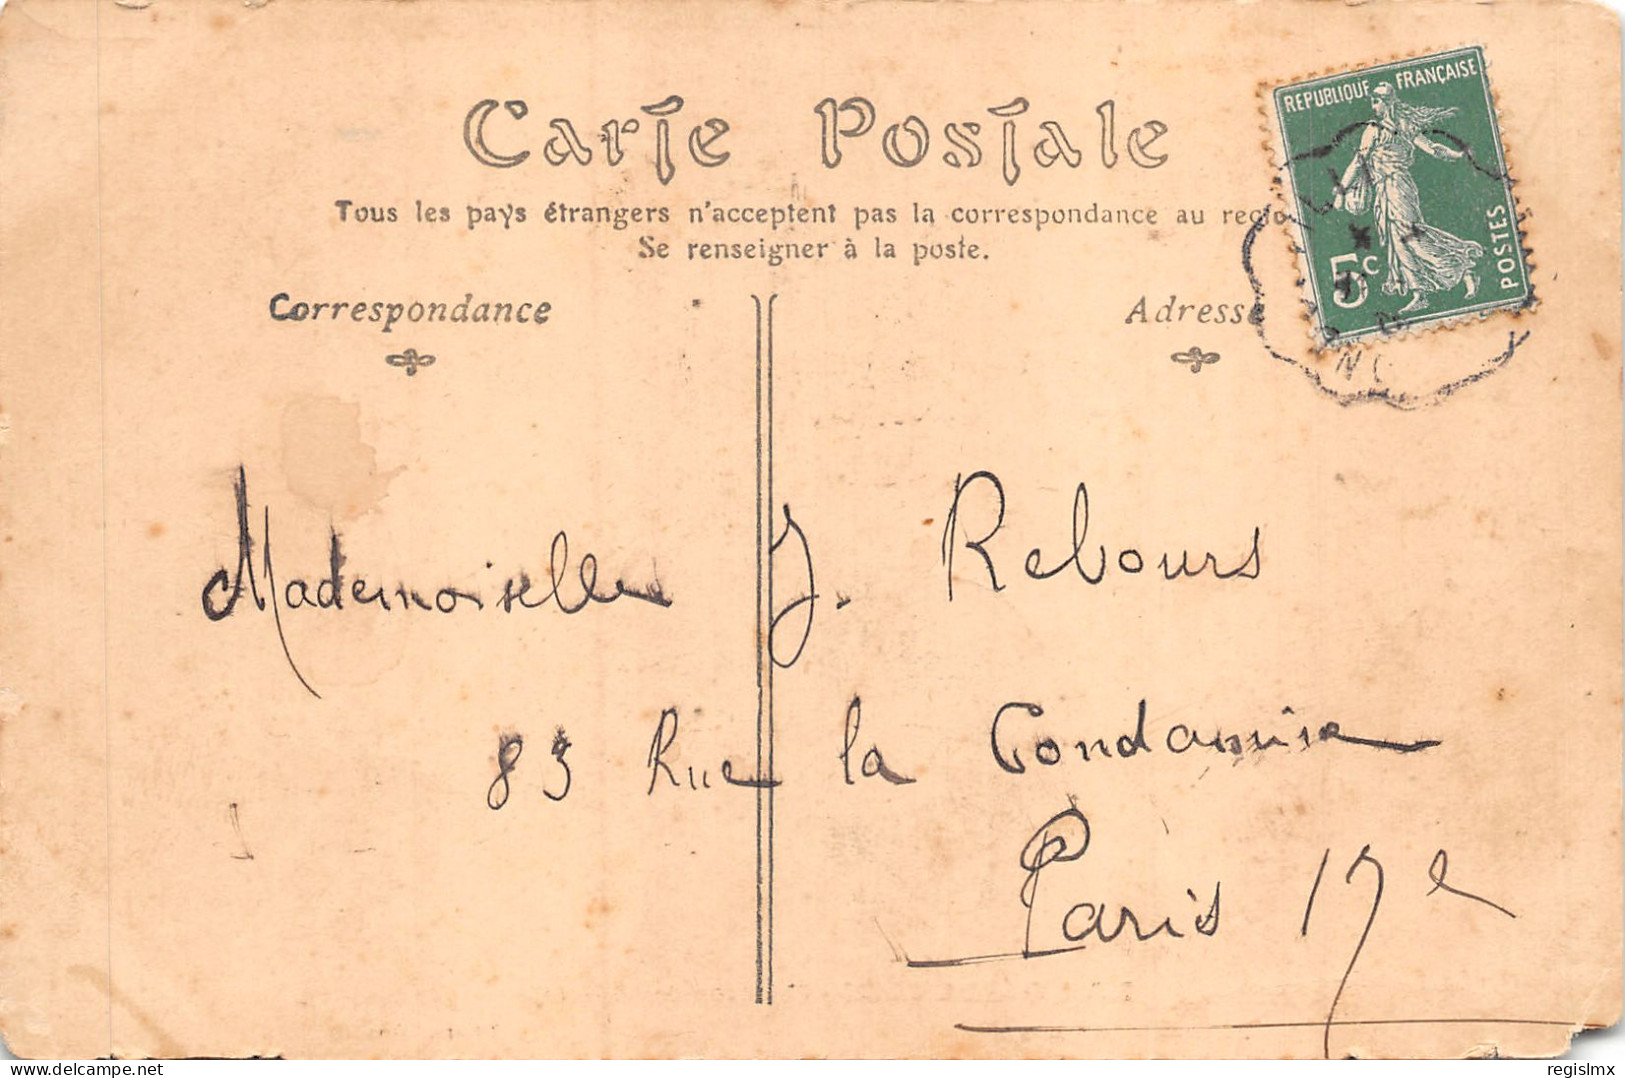 Carte Postale
Tous les pays étrangers n'acceptent pas la correspondance au recto
Se renseigner à la poste.
Correspondance
Adresse
REPUBLIQUE FRANÇAISE
5c
POSTES
Mademoiselle J. Rebours
83 Rue la Condamine
Paris 17e
regislmx